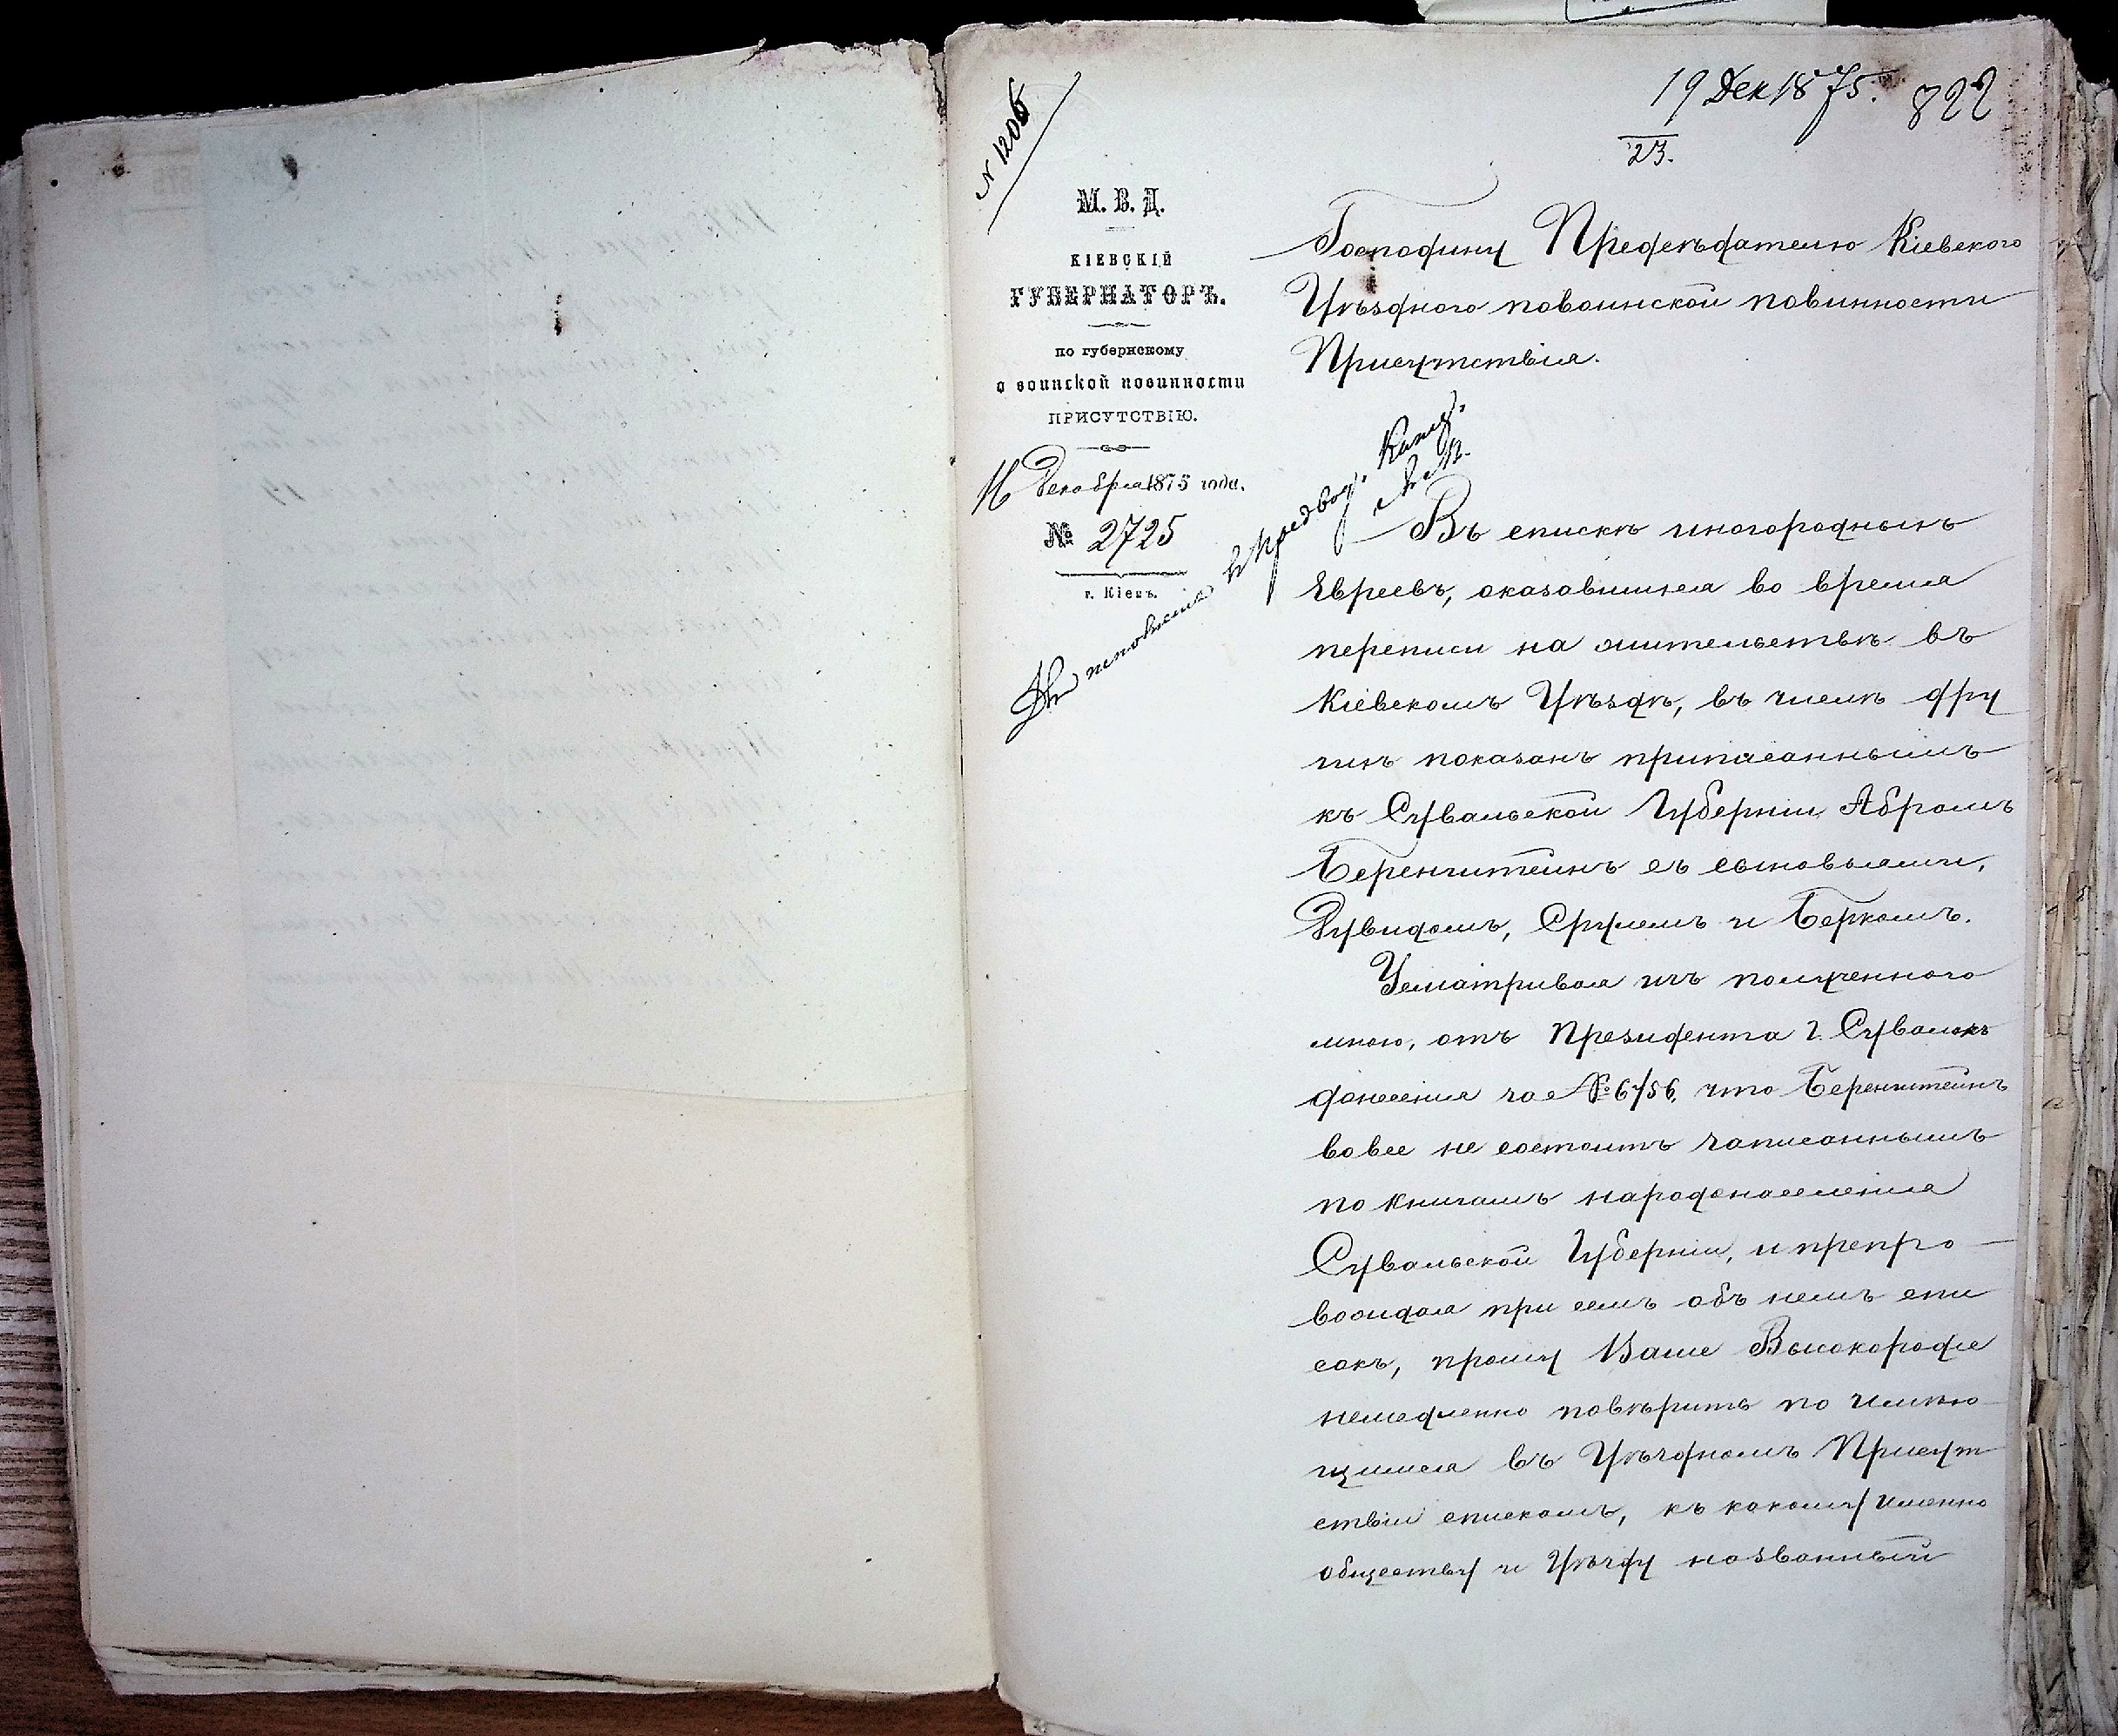 N 1206
19 Дек 1875.
822
23.
М. В. Д.
КІЕВСКІЙ
ГУБЕРНАТОРЪ.
по губернскому
о воинской повинности
ПРИСУТСТВІЮ.
16 Декабря 1875 года.
№ 2725
г. Кіевъ.
Господину Предсѣдателю Кіевского
Уѣздного по воинской повинности
Присутствія.
Въ спискѣ иногороднымъ
Евреевъ, оказавшихся во время
переписи на жительствѣ въ
Кіевскомъ Уѣздѣ, въ числѣ дру
гихъ показанъ приписаннымъ
къ Сувальской Губерніи, Абрамъ
Беренштейнъ съ сыновьями,
Рувидомъ, Срулемъ и Беркомъ.
Усматривая изъ полученного
мною, отъ Президента г. Сувалокъ
донесенія за № 6756, что Беренштейнъ
вовсе не состоитъ записаннымъ
по книгамъ народонаселенія
Сувальской Губерніи, и препро
вождая при семъ объ немъ спи
сокъ, прошу Ваше Высокородіе
немедленно повѣрить по имѣю
щимся въ Уѣздномъ Присут
ствіи спискамъ, къ какому именно
обществу и Уѣзду названный